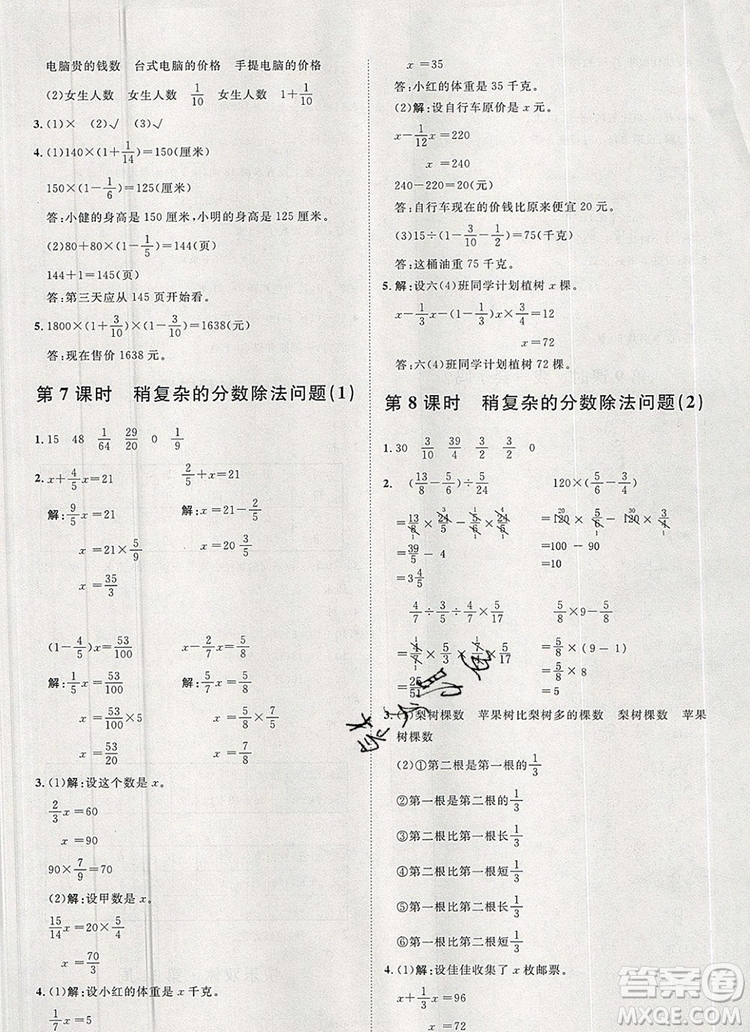 电脑贵的钱数 台式电脑的价格 手提电脑的价格
(2)女生人数 女生人数 1/10 女生人数 1+1/10
3. (1)× (2)√ (3)√
4. (1)140×(1+1/14)=150(厘米)
150×(1-1/6)=125(厘米)
答:小健的身高是 150 厘米,小明的身高是 125 厘米。
(2)80+80×(1-1/5)=144(页)
144+1=145(页)
答:第三天应从 145 页开始看。
5. 1800×(1+3/10)×(1-3/10)=1638(元)
答:现在售价 1638 元。
第 7 课时 稍复杂的分数除法问题(1)
1. 15 48 1/64 29/20 0 1/9
2. x+4/5x=21 2/5+x=21
解:9/5x=21 解:x=21-2/5
x=21×5/9 x=20 3/5
x=35/3
(1-4/5)x=53/100 x-2/7x=5/8
解:1/5x=53/100 解:5/7x=5/8
x=53/100×5 x=5/8×7/5
x=53/20 x=7/8
3. (1)解:设这个数是 x。
2/3x=60
x=90
90×7/9=70
(2)解:设甲数是 x。
4/5x=20×7/6
x=70/3
4. (1)解:设小红的体重是 x 千克。
x=35
答:小红的体重是 35 千克。
(2)解:设自行车原价是 x 元。
x-1/12x=220
x=240
240-220=20(元)
答:自行车现在的价钱比原来便宜 20 元。
(3)15÷(1-3/10-1/2)=75(千克)
答:这桶油重 75 千克。
5. 解:设六(4)班同学计划植树 x 棵。
x-(1/3+2/9)x=32
x=72
答:六(4)班同学计划植树 72 棵。
第 8 课时 稍复杂的分数除法问题(2)
1. 30 3/10 39/4 3/2 0
2. (13/8-5/6)÷5/24 120×(5/6-3/4)
=13/8×24/5-5/6×24/5 =120×5/6-120×3/4
=39/5-4 =100-90
=3 4/5 =10
4/7÷3/5÷4/7×5/17 5/8×9-5/8
=4/7×5/3×7/4×5/17 =5/8×(9-1)
=25/51 =5
3. (1)梨树棵数 苹果树比梨树多的棵数 梨树棵数 苹果
树棵数
(2)①第二根是第一根的1/3
②第一根是第二根的1/3
③第二根比第一根长1/3
④第二根比第一根短1/3
⑤第一根比第二根短1/3
⑥第一根比第二根长1/3
4. (1)解:设佳佳收集了 x 枚邮票。
x+1/3x=96
x=72
答案圈
MXQE.COM